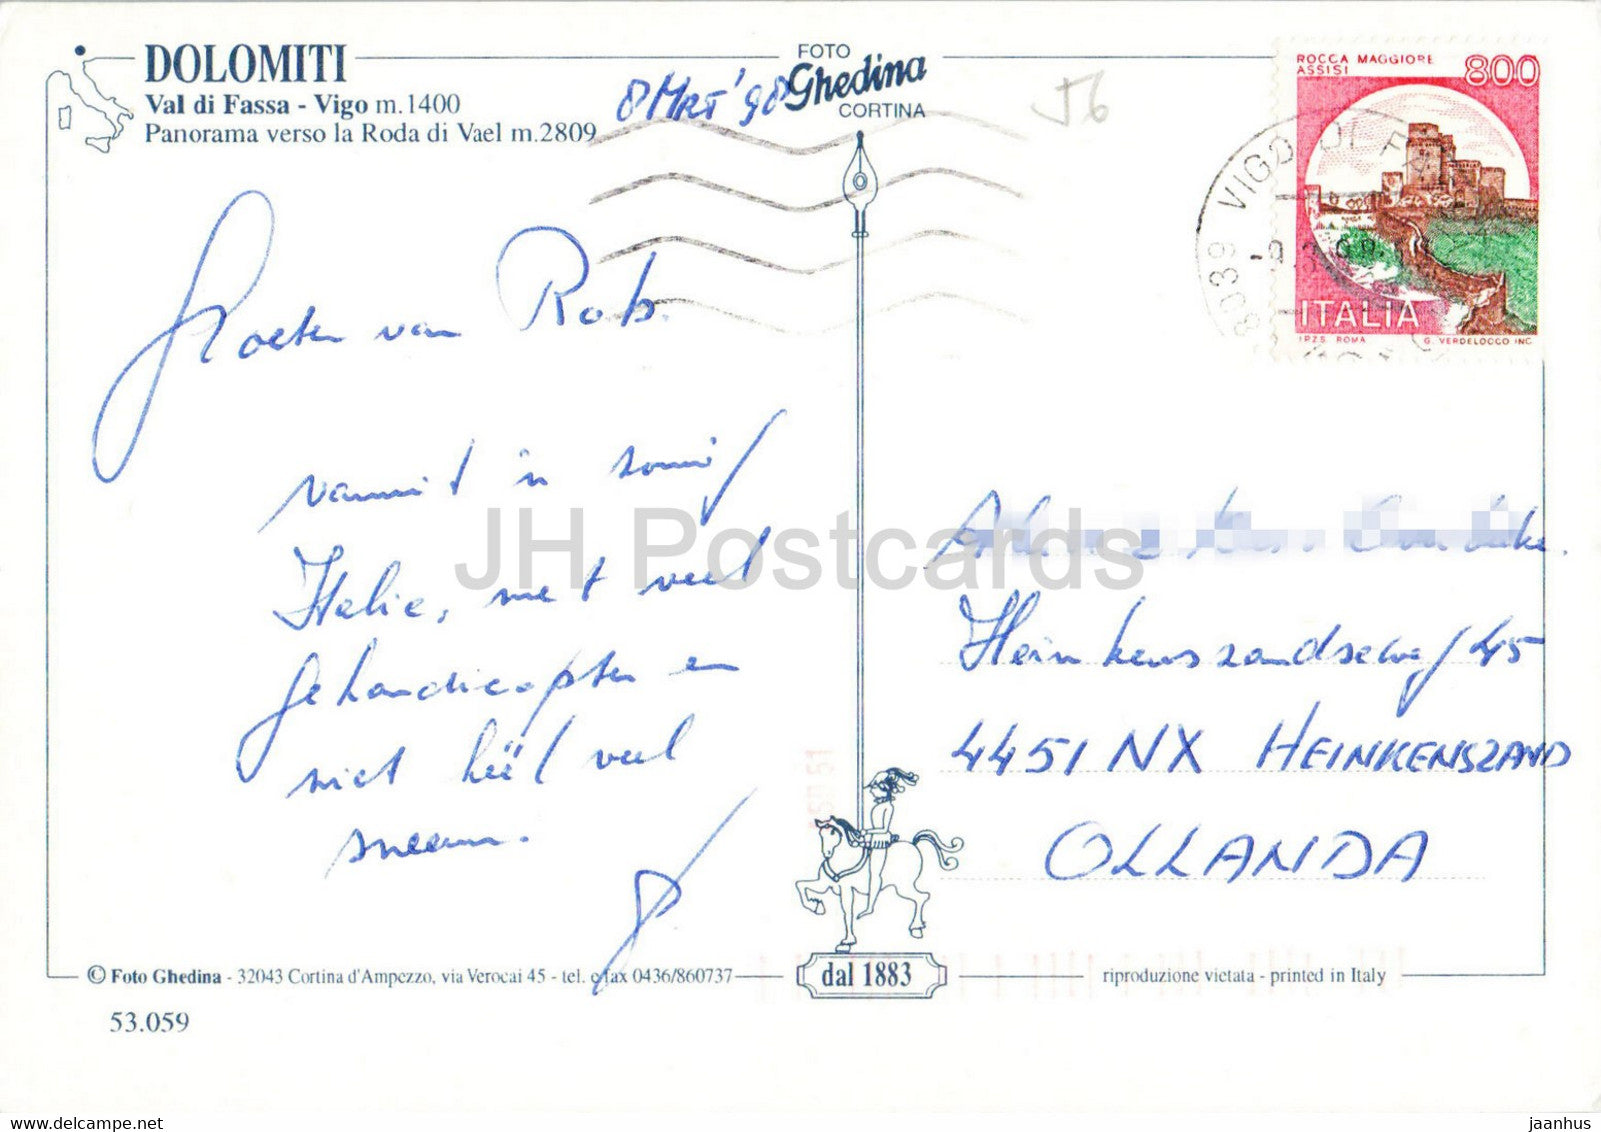 DOLOMITI
Val di Fassa - Vigo m.1400
Panorama verso la Roda di Vael m.2809
8 MRT '98
FOTO
Ghedina
CORTINA
56
ROCCA MAGGIORE
ASSISI
800
ITALIA
I.P.Z.S. ROMA
G. VERDELOCCO INC.
8039 VIGO DI FA
Groeten van Rob.
vanuit in zonnig
Italie, met veel
gehandicapten en
niet héél veel
sneeuw.
Heinkenszandseweg 45
4451 NX HEINKENSZAND
OLLANDA
JH Postcards
© Foto Ghedina - 32043 Cortina d'Ampezzo, via Verocai 45 - tel. e fax 0436/860737
dal 1883
riproduzione vietata - printed in Italy
53.059
www.delcampe.net
jaanhus